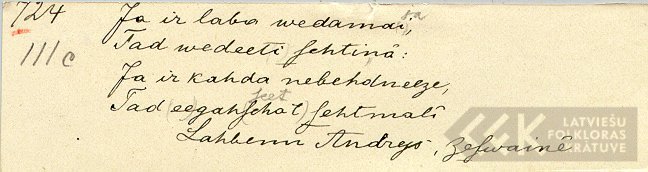 724
IIIc
Ja ir laba wedamai, ja
Tad wedeeti sehtinâ:
Ja ir kahda nebehdneeze,
seet
Tad (eegahschat) sehtmalî
Lahbenn Andrejs, Zeswainê
LATVIEŠU
FOLKLORAS
KRĀTUVE